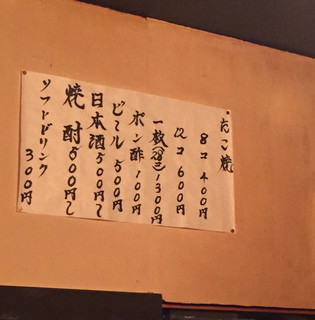 たこ焼
8コ 400円
12コ 600円
一枚(28コ) 1300円
ポン酢 100円
ビール 500円
日本酒 500円〜
焼酎 500円〜
ソフトドリンク 300円